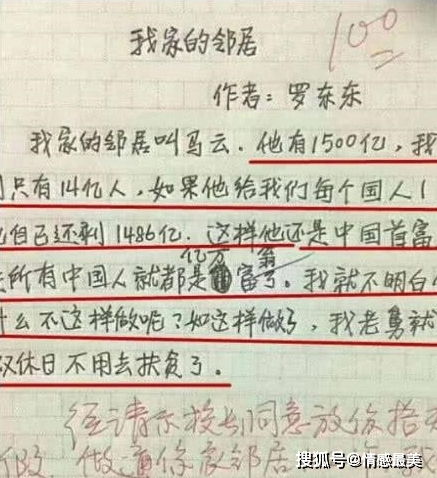 100
我家的邻居
作者：罗东东
我家的邻居叫马云．他有1500亿，我
只有14亿人，如果他给我们每个国人1
自己还剩1486亿．这样他还是中国首富
亿万 翁
所有中国人就都是富了。我就不明白
什么不这样做呢？如这样做了，我老舅就
双休日不用去扶贫了。
经请示校长同意放你
假 做通你家邻居
搜狐号@情感最美